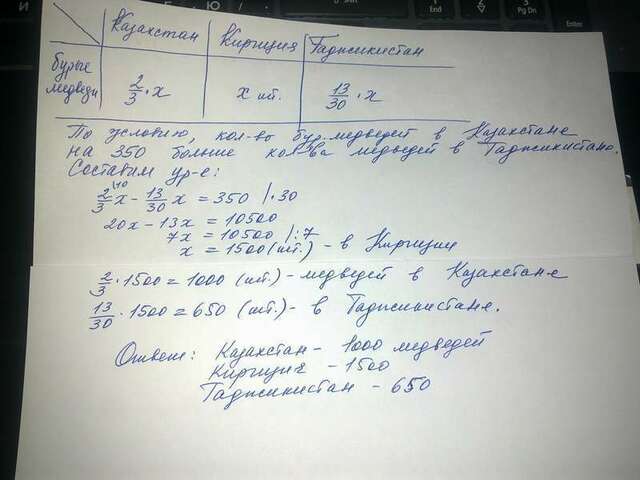 Казахстан Киргизия Таджикистан
бурые медведи 2/3 · x x шт. 13/30 · x
По условию, кол-во бур. медведей в Казахстане
на 350 больше кол-ва медведей в Таджикистане.
Составим ур-е:
2/3 x - 13/30 x = 350 | · 30
20x - 13x = 10500
7x = 10500 | : 7
x = 1500 (шт.) - в Киргизии
2/3 · 1500 = 1000 (шт.) - медведей в Казахстане
13/30 · 1500 = 650 (шт.) - в Таджикистане.
Ответ: Казахстан - 1000 медведей
Киргизия - 1500
Таджикистан - 650